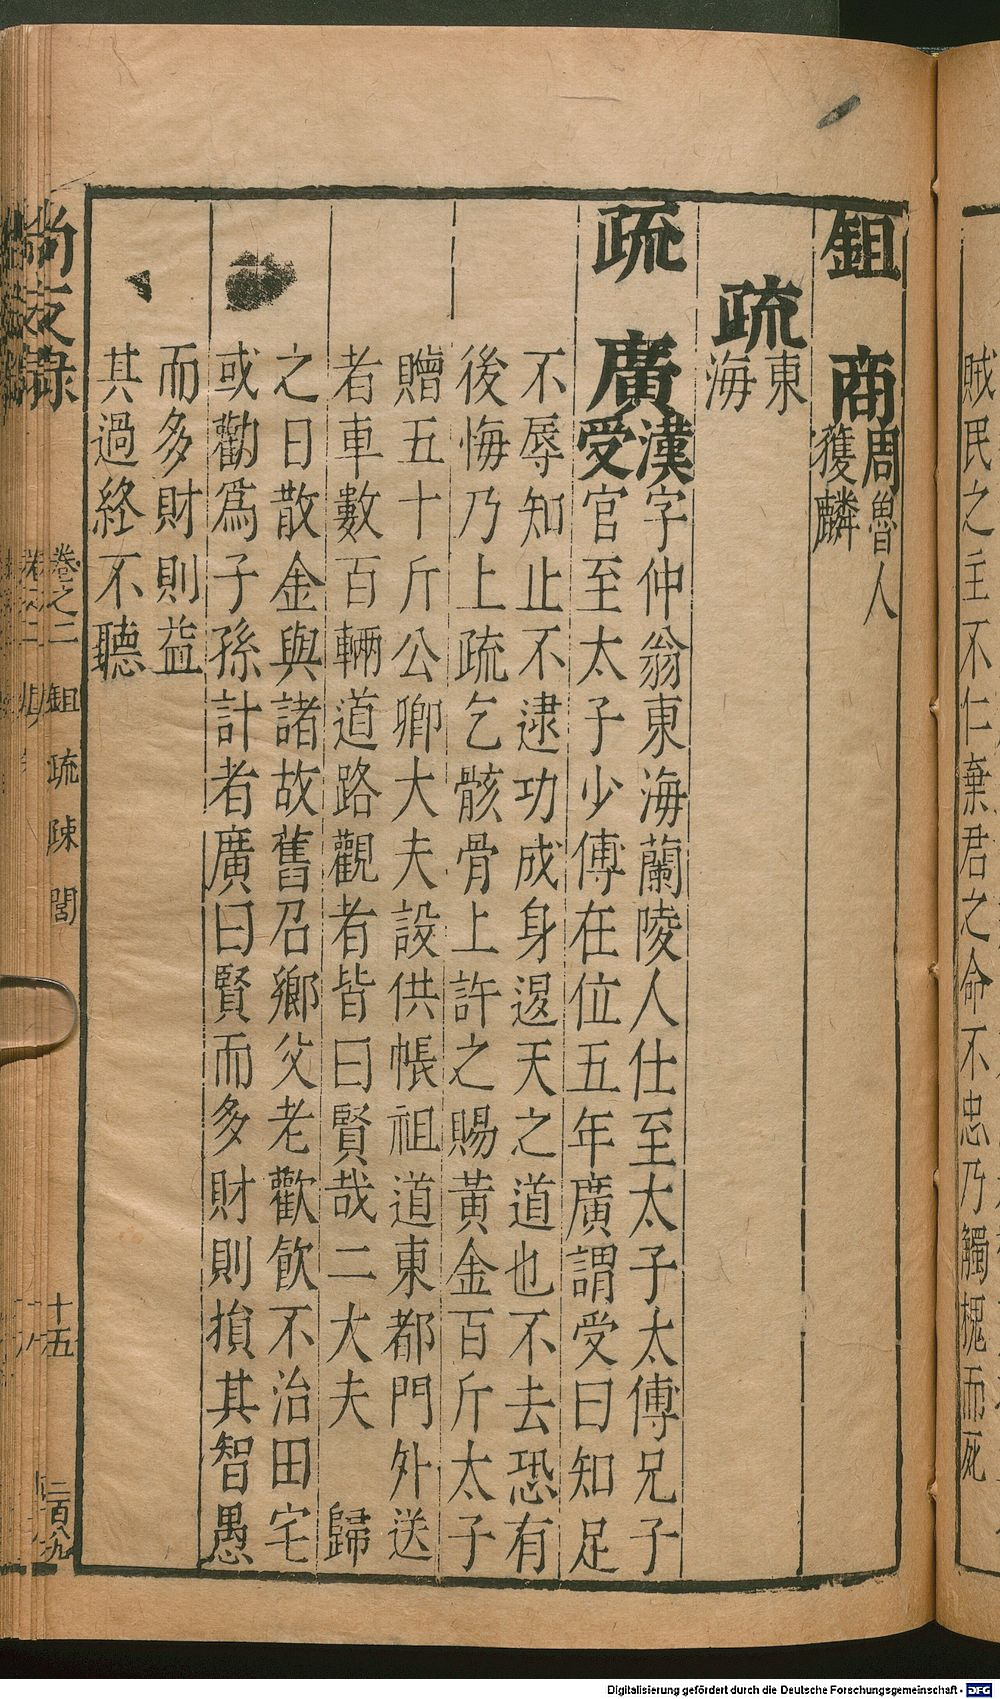 賊民之主不仁棄君之命不忠乃觸槐而死
鉏商周魯人
獲麟
疏東
海
疏廣漢字仲翁東海蘭陵人仕至太子太傅兄子
受官至太子少傅在位五年廣謂受曰知足
不辱知止不逮功成身退天之道也不去恐有
後悔乃上疏乞骸骨上許之賜黃金百斤太子
贈五十斤公卿大夫設供帳祖道東都門外送
者車數百輛道路觀者皆曰賢哉二大夫 歸
之日散金與諸故舊召鄉父老歡飲不治田宅
或勸爲子孫計者廣曰賢而多財則損其智愚
而多財則益
其過終不聽
尚友錄 卷之二 鉏 疏 疎 閭 十五 二百八九
Digitalisierung gefördert durch die Deutsche Forschungsgemeinschaft - DFG